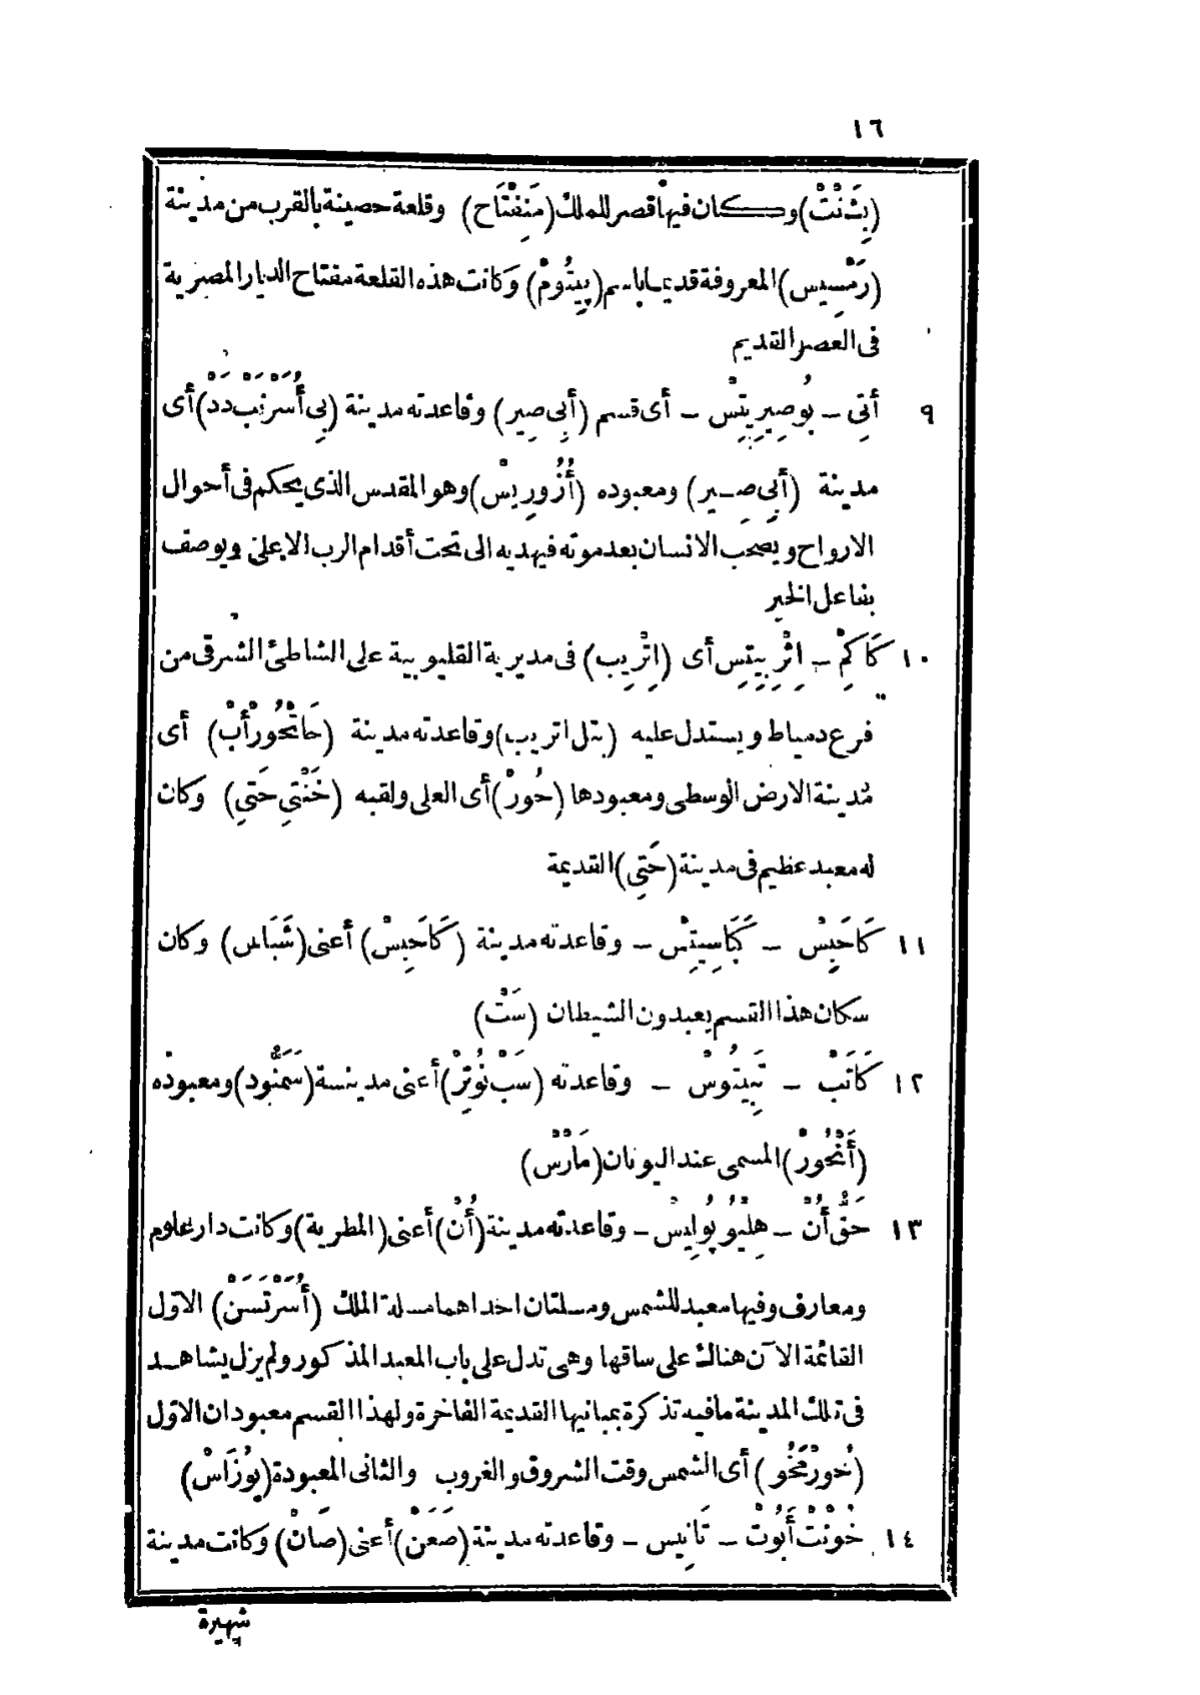 ١٦
(بِثْنْتْ) وكان فيها قصر للملك (مَنِفْتَاح) وقلعة حصينة بالقرب من مدينة
(رَمْسِيس) المعروفة قديما باسم (بِيتُومْ) وكانت هذه القلعة مفتاح الديار المصرية
فى العصر القديم
٩ أَتِى – بُوصِيرِيتِسْ – أى قسم (أَبِى صِير) وقاعدته مدينة (بِى أُسَرْنَبْ دَدْ) أى
مدينة (أَبِى صِير) ومعبوده (أُزُورِيسْ) وهو المقدس الذى يحكم فى أحوال
الارواح ويصحب الانسان بعد موته فيهديه الى تحت أقدام الرب الاعلى ويوصف
بفاعل الخير
١٠ كَاكِمْ – اِتْرِيبِيتِسِ أى (اِتْرِيب) فى مديرية القليوبية على الشاطئ الشرقى من
فرع دمياط ويستدل عليه (بتل اتريب) وقاعدته مدينة (حَاتْحُورْأَبْ) أى
مدينة الارض الوسطى ومعبودها (حُورْ) أى العلى ولقبه (خَنْتِى حَتِى) وكان
له معبد عظيم فى مدينة (حَتِى) القديمة
١١ كَاحَبِسْ – كَبَاسِيتِسْ – وقاعدته مدينة (كَاحَبِسْ) أعنى (شَبَاس) وكان
سكان هذا القسم يعبدون الشيطان (سَتْ)
١٢ كَاتَبْ – تَبِيتُوسْ – وقاعدته (سَبْ نُوتِرْ) أعنى مدينة (سَمَنُّود) ومعبوده
(أَنْحُورْ) المسمى عند اليونان (مَارْسْ)
١٣ حَقْ أُنْ – هِلْيُوپُولِيسْ – وقاعدته مدينة (أُنْ) أعنى (المطرية) وكانت دار علوم
ومعارف وفيها معبد للشمس ومسلتان احداهما مسلة الملك (أُسَرْتَسَنْ) الاول
القائمة الآن هناك على ساقها وهى تدل على باب المعبد المذكور ولم يزل يشاهد
فى تلك المدينة مافيه تذكرة بمبانيها القديمة الفاخرة ولهذا القسم معبودان الاول
(خُورْمَخُو) أى الشمس وقت الشروق والغروب والثانى المعبودة (يُوزَاسْ)
١٤ خُونْتْ أَبُوتْ – تَانِيس – وقاعدته مدينة (صَعَنْ) أعنى (صَانْ) وكانت مدينة
شهيرة